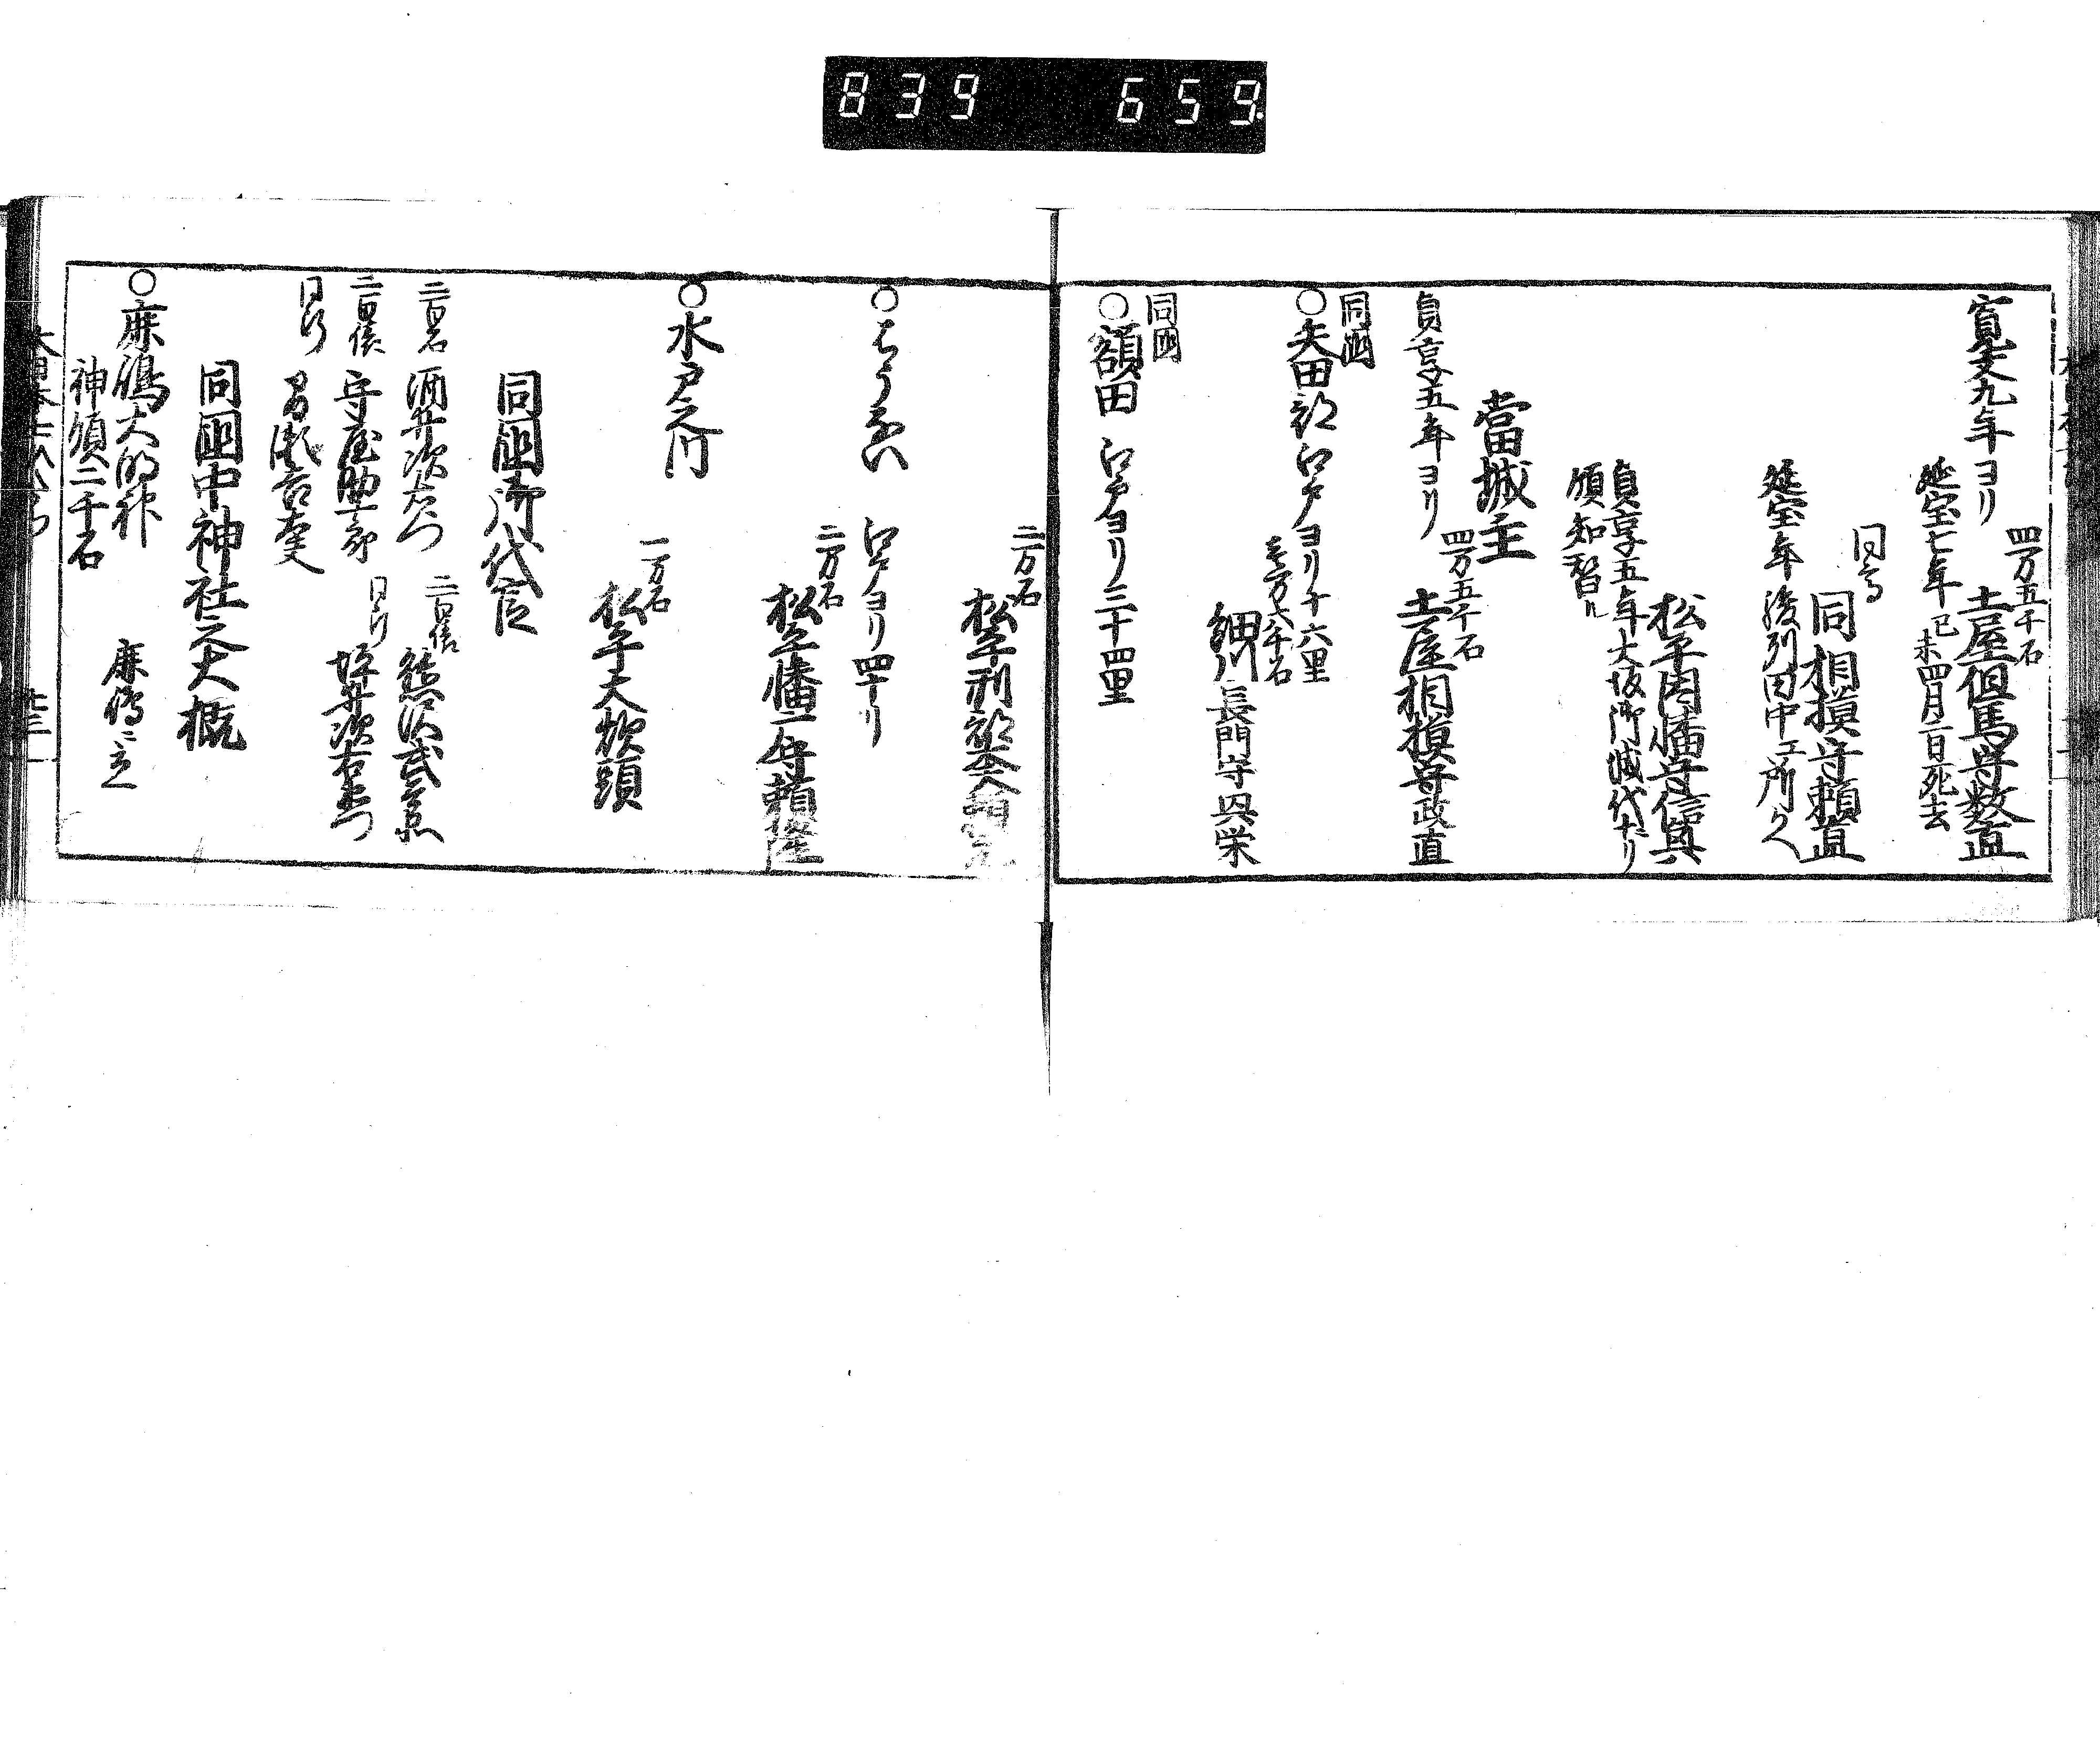 839 659
寛文九年ヨリ
四万五千石
土屋但馬守数直
延宝七年己未四月二日死去
同高
同相摸守頼直
延宝年駿列田中エ所カヘ
松平因幡守信興
貞享五年大坂御城代ナリ
領知替ル
當城主
貞享五年ヨリ
四万五千石
土屋相摸守政直
同國
〇矢田部 江戸ヨリ十六里
壱万六千石
細川長門守興栄
同國
〇額田 江戸ヨリ三十四里
二万石
松平刑部大夫頼元
江戸ヨリ四十リ
二万石
松平播广守頼隆
〇水戸之内
一万石
松平大炊頭
同國御代官
二百石 酒井次右衛門
二百俵
二百俵 守屋助二郎
同行 坪井次右衛門
同行
同國中神社之大概
〇鹿嶋大明神
鹿嶋ニ立
神領二千石